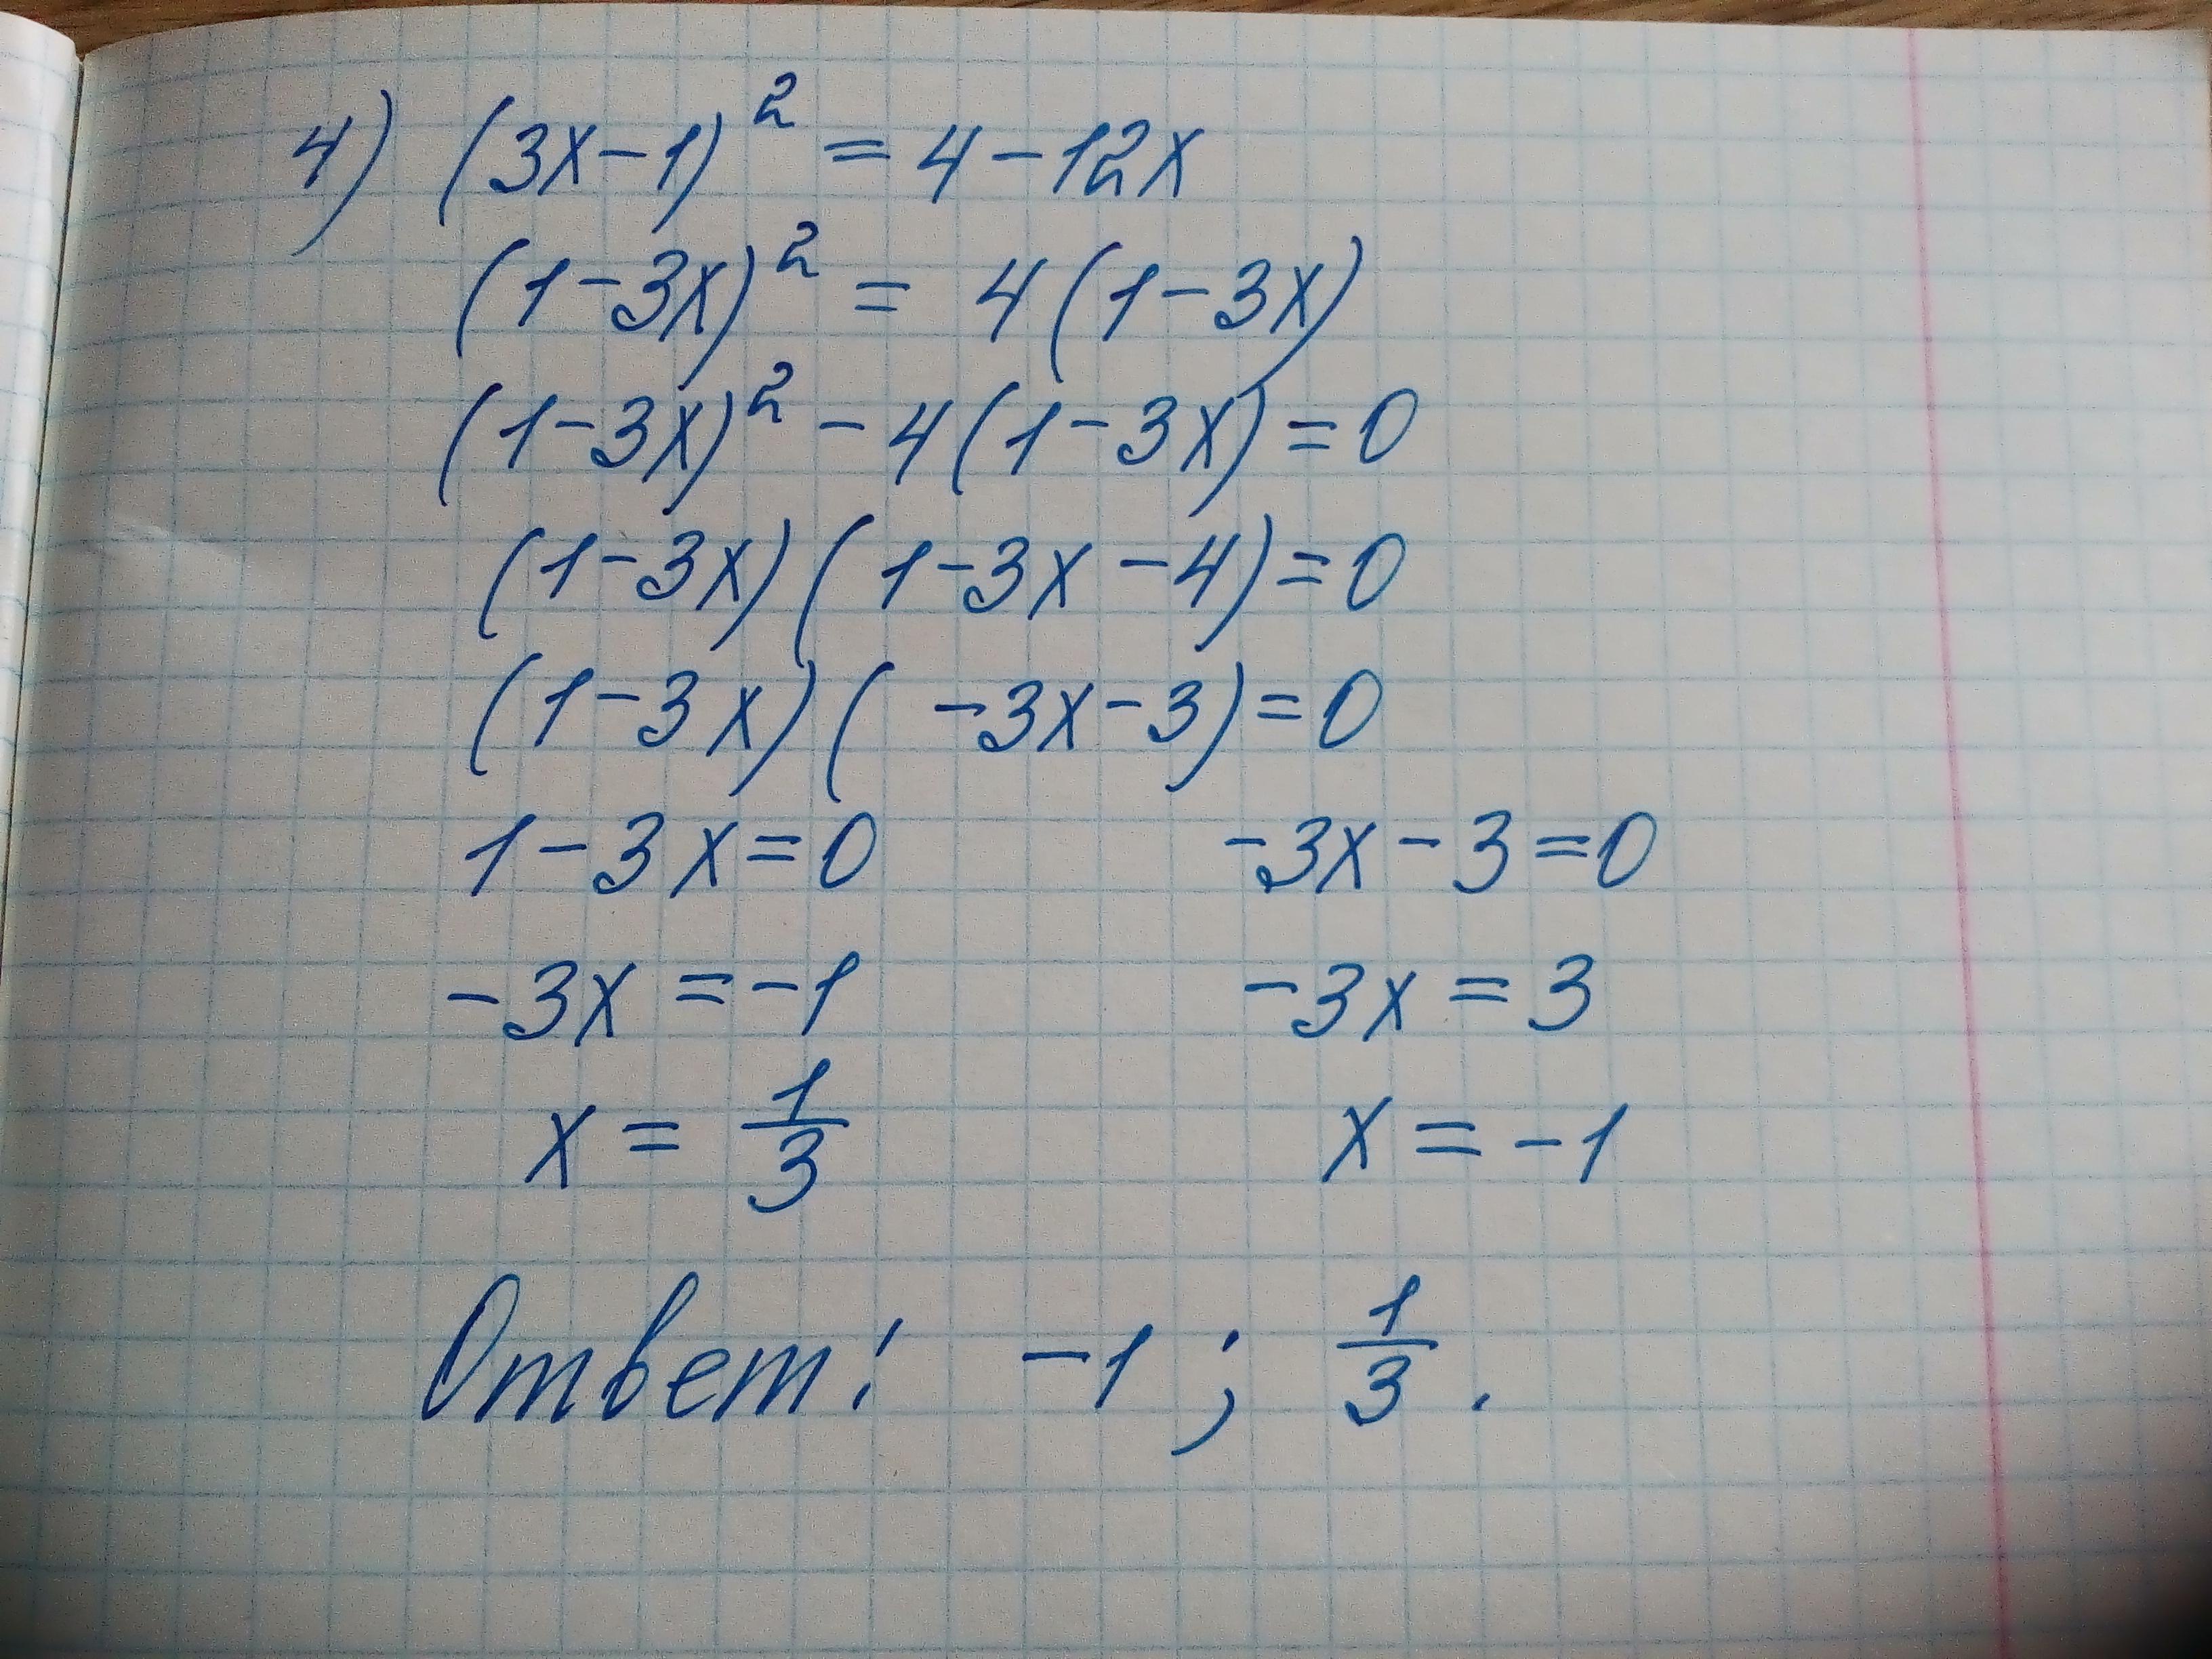 4) (3x-1)² = 4-12x
(1-3x)² = 4(1-3x)
(1-3x)² - 4(1-3x)=0
(1-3x)(1-3x-4)=0
(1-3x)(-3x-3)=0
1-3x=0 -3x-3=0
-3x=-1 -3x=3
x = 1/3 x = -1
Ответ: -1; 1/3.